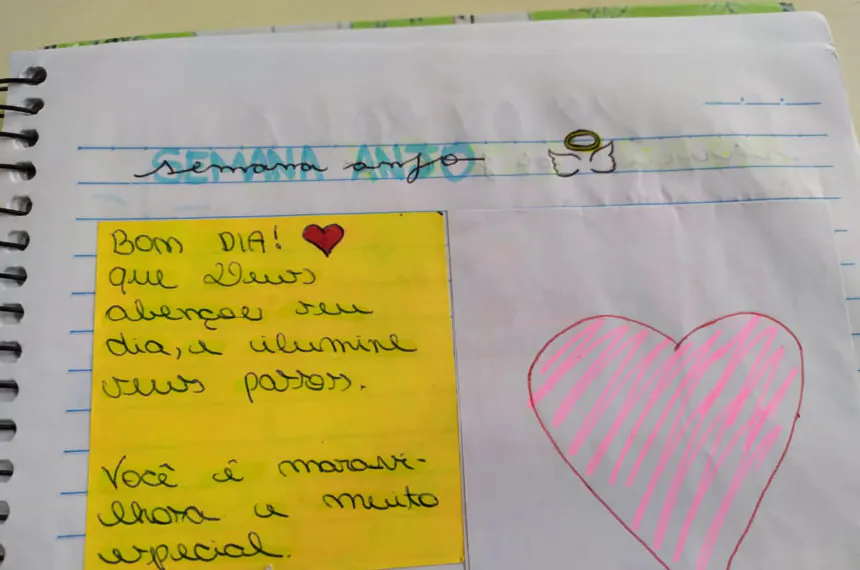 semana anjo
BOM DIA!
que Deus
abençoe seu
dia, e ilumine
seus passos.
Você é maravi-
lhosa e muito
especial.